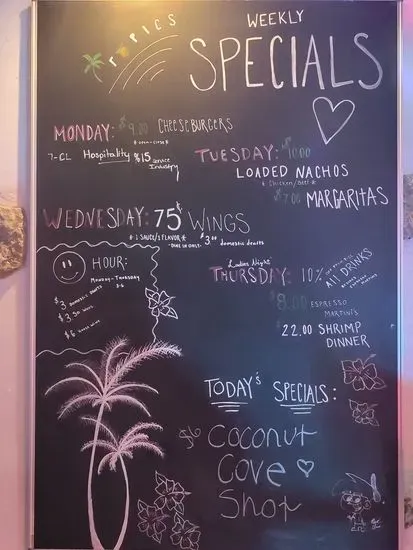 TOPICS
WEEKLY
SPECIALS
MONDAY: $9.00 CHEESEBURGERS
*open-close*
7-CL Hospitality $15 Service Industry
TUESDAY: 10.00
LOADED NACHOS
* Chicken/Beef *
$7.00 MARGARITAS
WEDNESDAY: 75¢ WINGS
* 1 SAUCE/1 FLAVOR *
*DINE IN ONLY* $3.00 domestic drafts
HOUR:
MONDAY-THURSDAY
3-6
$3 DOMESTIC DRAFTS
$3.50 WELLS
$6 HOUSE WINE
Ladies Night
THURSDAY: 10%
All DRINKS
$8.00 ESPRESSO
MARTINI'S
$22.00 SHRIMP
DINNER
TODAY'S SPECIALS:
$6 Coconut
Cove
Shot